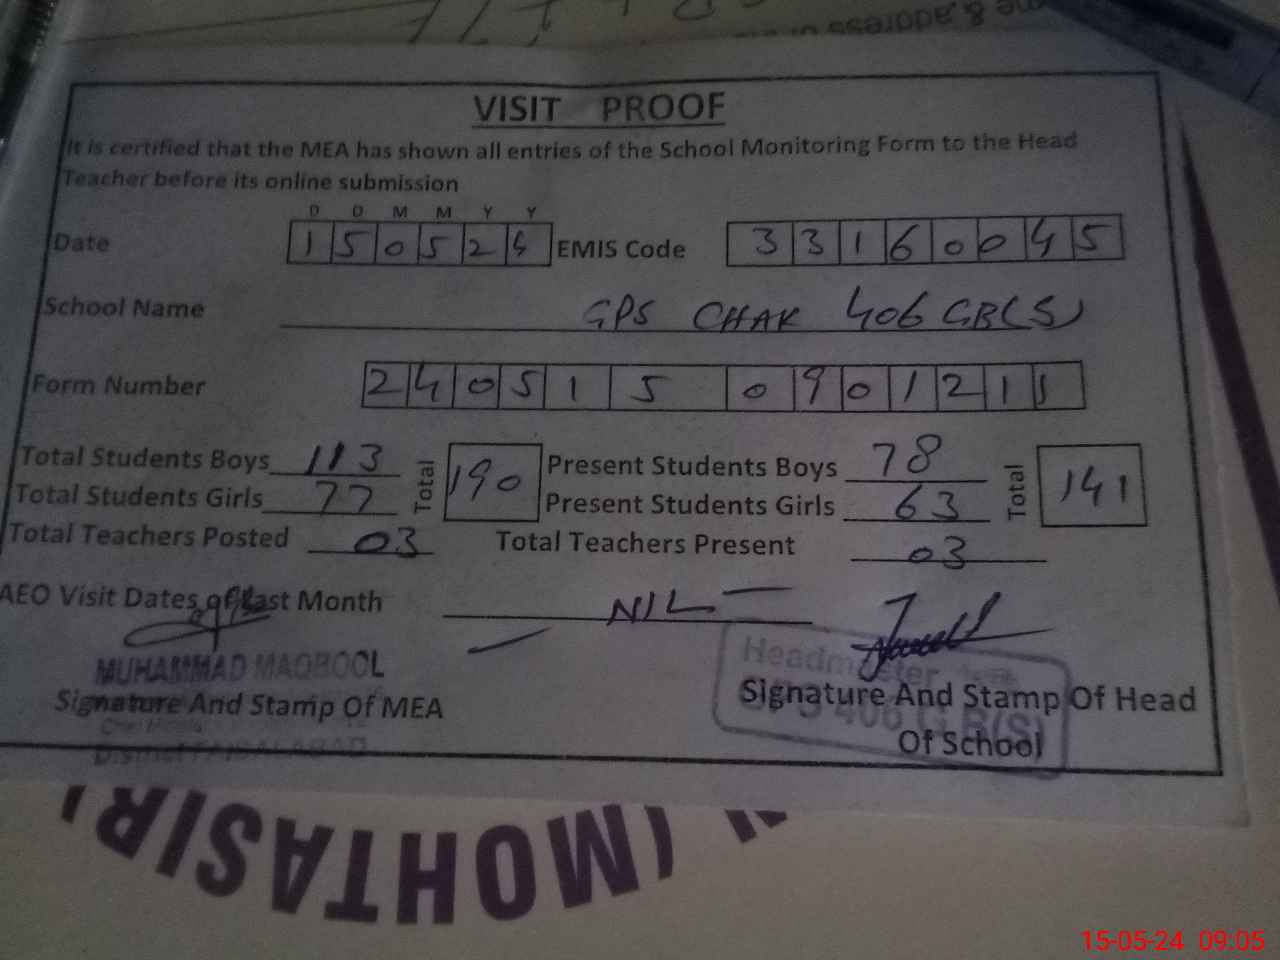 ne & address
VISIT PROOF
It is certified that the MEA has shown all entries of the School Monitoring Form to the Head
Teacher before its online submission
D D M M Y Y
Date 1 5 0 5 2 4 EMIS Code 3 3 1 6 0 0 4 5
School Name GPS CHAK 406 GB(S)
Form Number 2 4 0 5 1 5 0 9 0 1 2 1 1
Total Students Boys 113 Total 190 Present Students Boys 78 Total 141
Total Students Girls 77 Present Students Girls 63
Total Teachers Posted 03 Total Teachers Present 03
AEO Visit Dates of Last Month NIL
MUHAMMAD MAQBOOL
Headmaster
Signature And Stamp Of MEA
Signature And Stamp Of Head
Of School
406 G.B(S)
District FAISALABAD
(MOHTASIR)
15-05-24 09:05